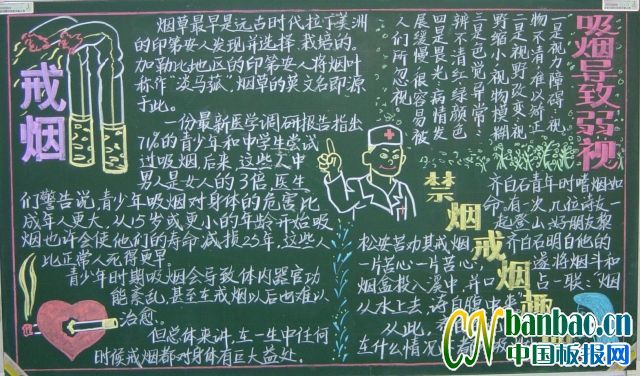 戒烟
烟草最早是远古时代拉丁美洲
的印第安人发现并选择、栽培的。
加勒比地区的印第安人将烟叶
称作“淡马菰”,烟草的英文名即源
于此。
一份最新医学调研报告指出
71%的青少年和中学生尝试
过吸烟后来,这些人中
男人是女人的3倍,医生
们警告说,青少年吸烟对身体的危害比
成年人更大,从15岁或更小的年龄开始吸
烟也许会使他们的寿命减损25年,这些人
比正常人死得更早。
青少年时期吸烟会导致体内器官功
能紊乱,甚至在戒烟以后也难以
治愈。
但总体来讲,在一生中任何
时候戒烟都对身体有巨大益处。
吸烟导致弱视
一是视力障碍,视
物不清难以矫正
二是视野改变,视
野缩小,物像模糊
三是色觉异常:
辨不清红绿颜色
四是畏光,病情发
展缓慢,很容易被
人们所忽视
禁烟戒烟趣
齐白石青年时嗜烟如
命,有一次,几位诗友一
起登山,好朋友黎
松安苦劝其戒烟,齐白石明白他的
一片苦心,遂将烟斗和
烟盒投入溪中,并口占一联:“烟
从水上去,诗自腹中来
从此,
在什么情况
banbao.cn
中国板报网